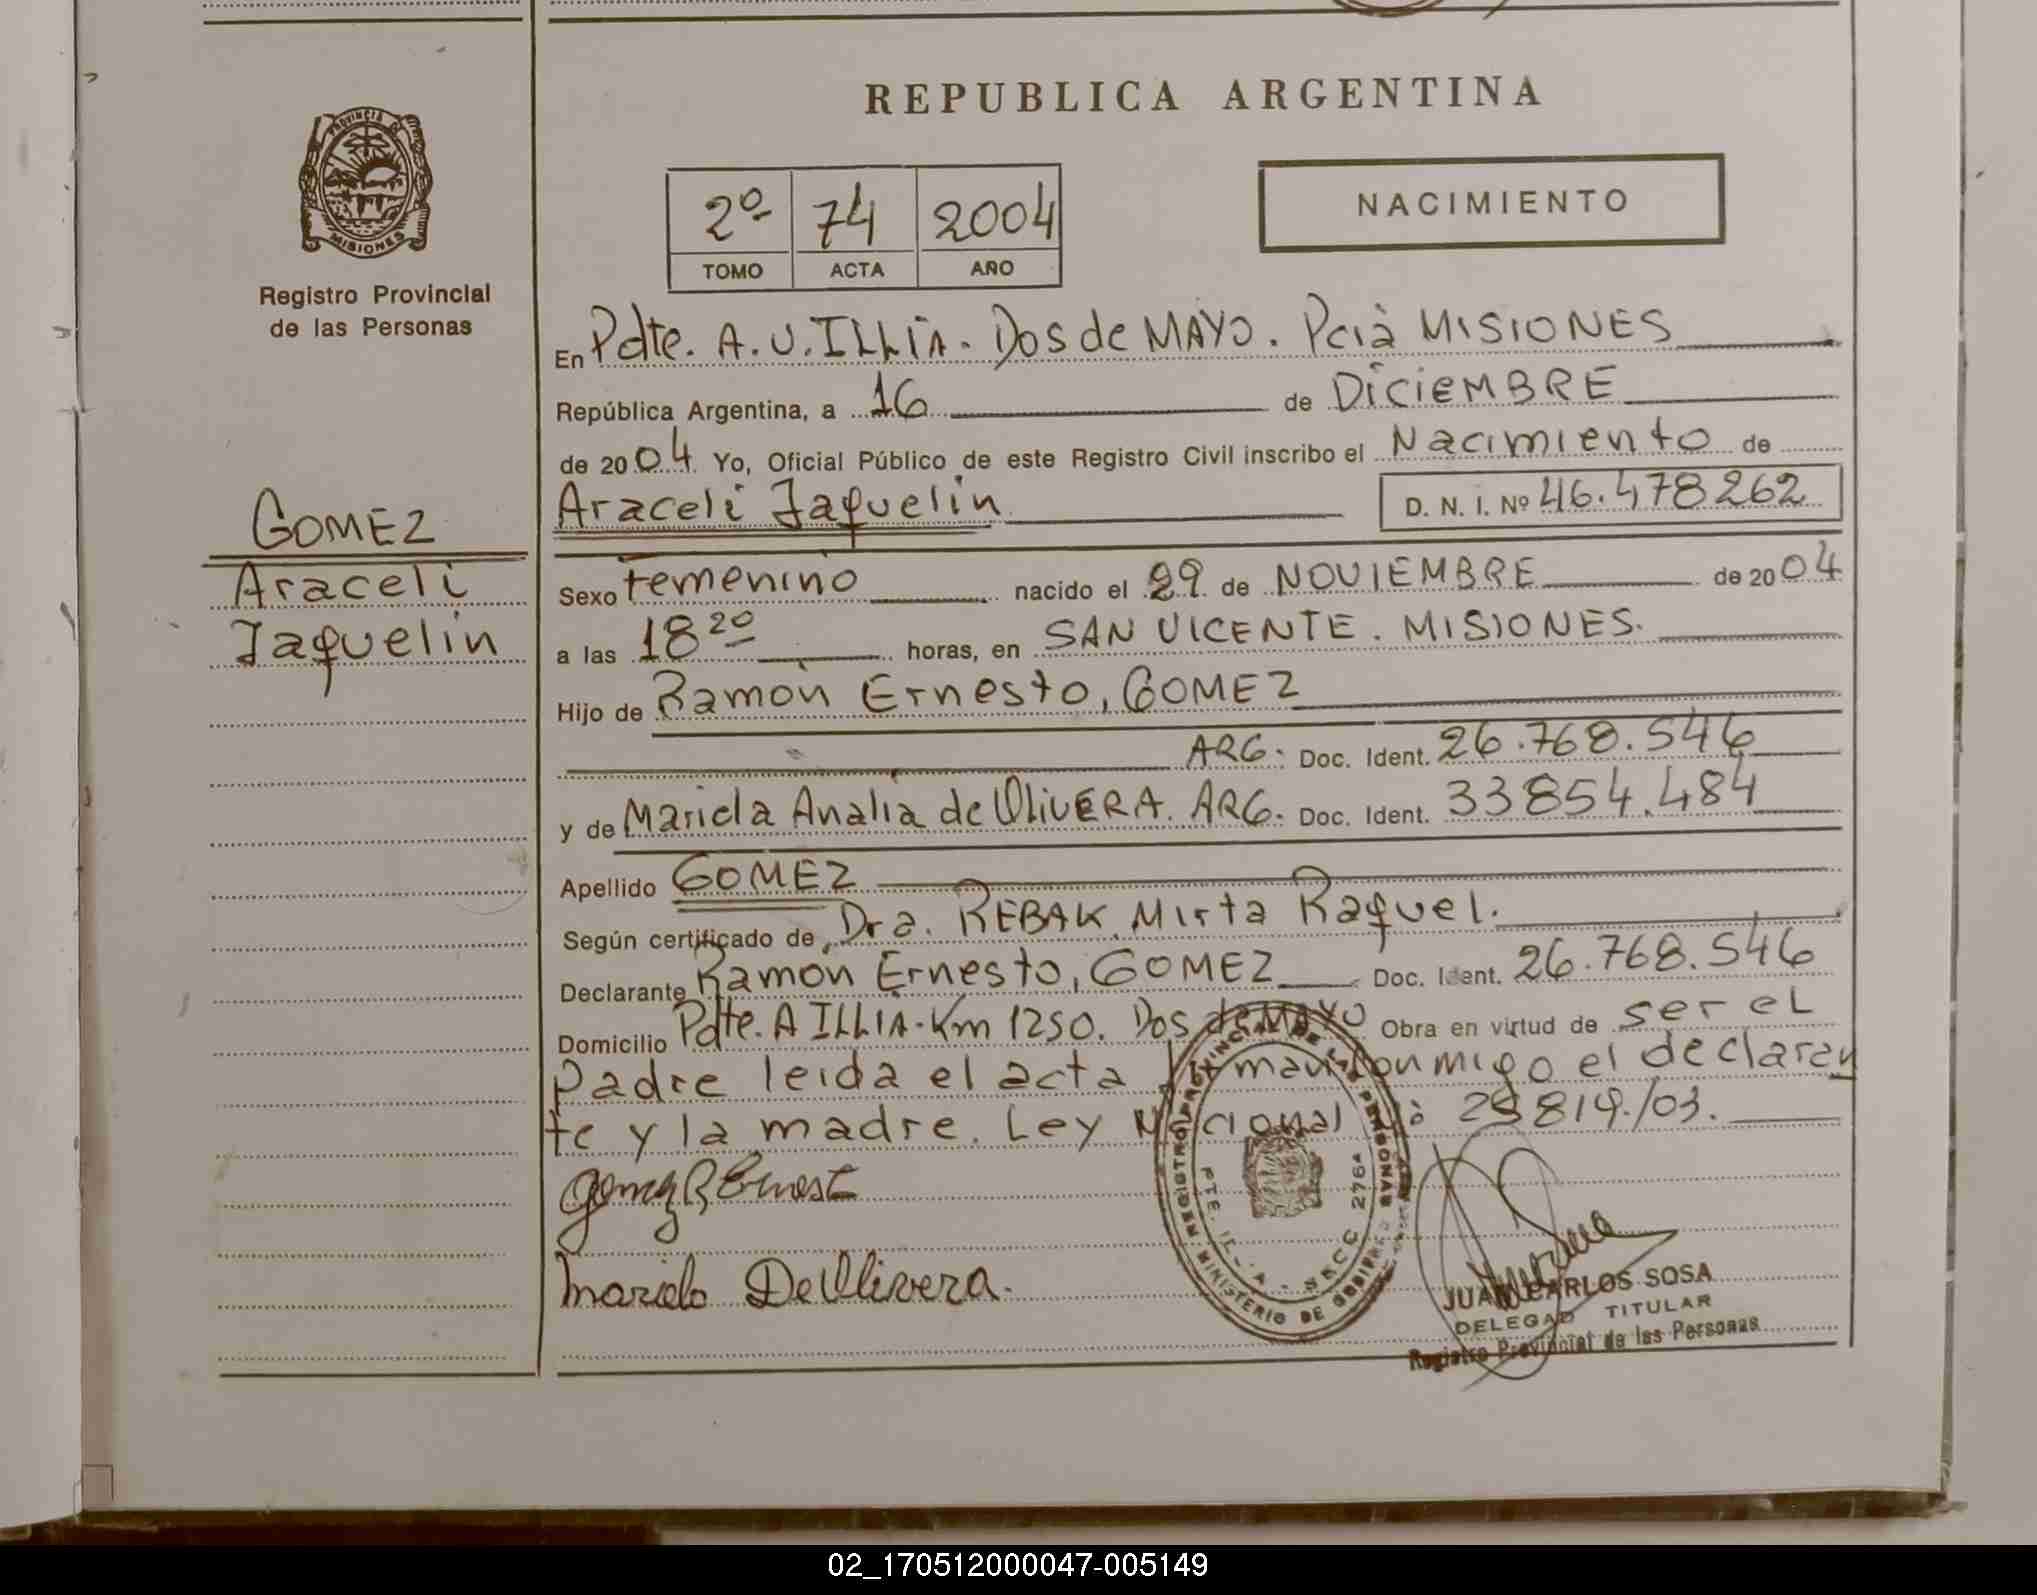 REPUBLICA ARGENTINA
PROVINCIA DE
MISIONES
Registro Provincial
de las Personas
2º 74 2004
TOMO ACTA AÑO
NACIMIENTO
En Pdte. A. U. ILLIA. Dos de MAYO. Pcia MISIONES
República Argentina, a 16 de DICIEMBRE
de 2004 Yo, Oficial Público de este Registro Civil inscribo el Nacimiento de
Araceli Jaquelin D. N. I. Nº 46.478262
GOMEZ
Araceli
Jaquelin
Sexo Femenino nacido el 29 de NOVIEMBRE de 2004
a las 18 20 horas, en SAN VICENTE. MISIONES.
Hijo de Ramón Ernesto, GOMEZ
ARG. Doc. Ident. 26.768.546
y de Mariela Analia de OliVERA. ARG. Doc. Ident. 33854.484
Apellido GOMEZ
Según certificado de Dra. REBAK Mirta Raquel.
Declarante Ramón Ernesto, GOMEZ Doc. Ident. 26.768.546
Domicilio Pdte. A ILLIA. Km 1250. Dos de MAYO Obra en virtud de ser el
padre leida el acta firman conmigo el declaran
te y la madre. Ley Nacional 25819/03.
Gomez R Ernest
Mariela De Olivera.
REGISTRO PROVINCIAL DE LAS PERSONAS
MINISTERIO DE GOBIERNO
SECC 2764
JUAN CARLOS SOSA
DELEGADO TITULAR
Registro Provincial de las Personas
02_170512000047-005149